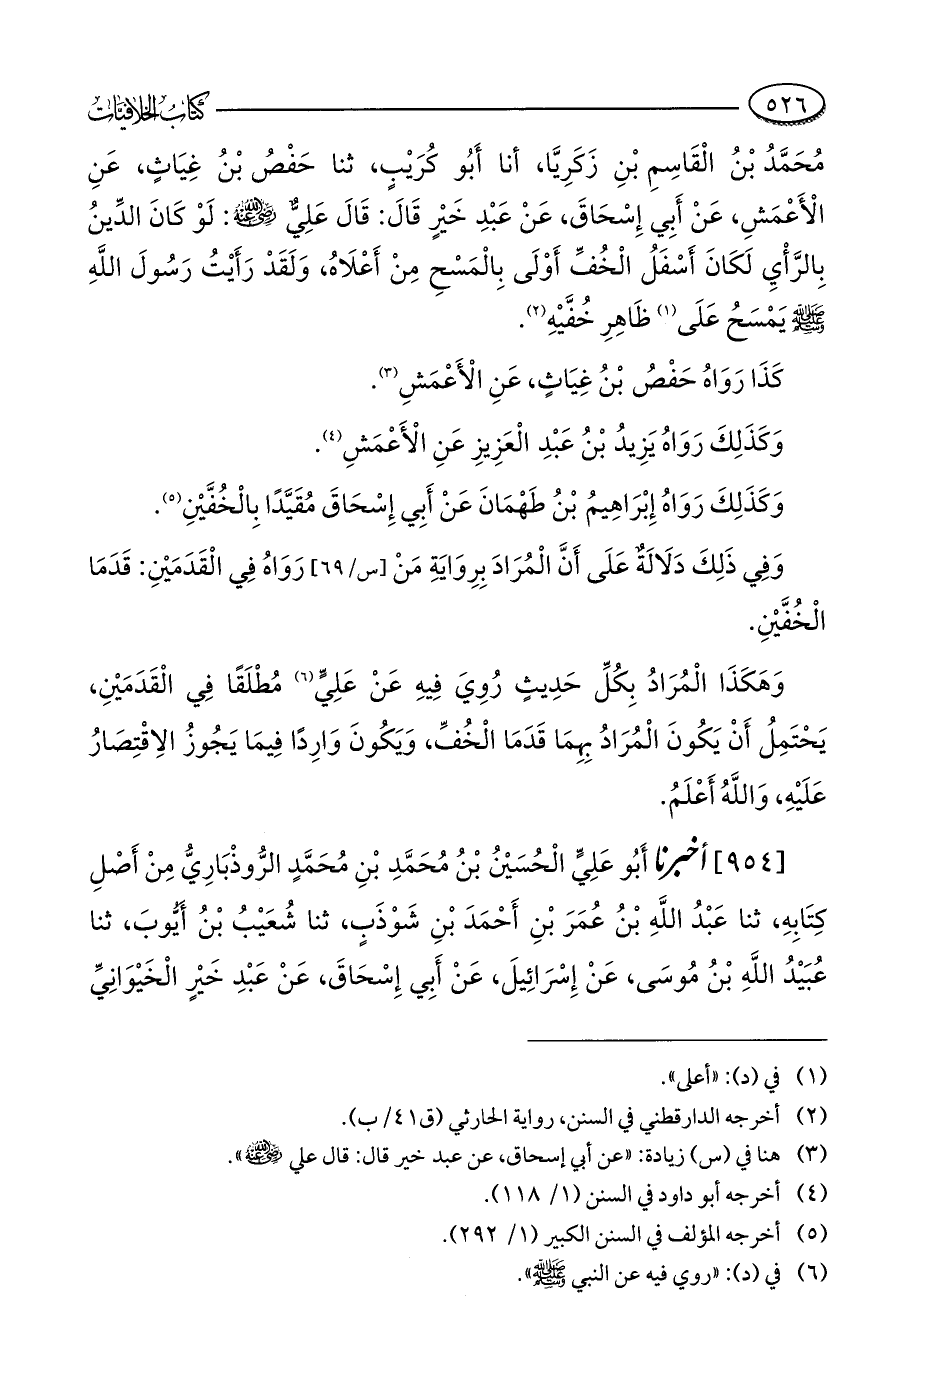 ٥٢٦ كتاب الخلافيات
مُحَمَّدُ بْنُ الْقَاسِمِ بْنِ زَكَرِيَّا، أنا أَبُو كُرَيْبٍ، ثنا حَفْصُ بْنُ غِيَاثٍ، عَنِ
الْأَعْمَشِ، عَنْ أَبِي إِسْحَاقَ، عَنْ عَبْدِ خَيْرٍ قَالَ: قَالَ عَلِيٌّ رضي الله عنه: لَوْ كَانَ الدِّينُ
بِالرَّأْيِ لَكَانَ أَسْفَلُ الْخُفِّ أَوْلَى بِالْمَسْحِ مِنْ أَعْلَاهُ، وَلَقَدْ رَأَيْتُ رَسُولَ اللَّهِ
ﷺ يَمْسَحُ عَلَى(١) ظَاهِرِ خُفَّيْهِ(٢).
كَذَا رَوَاهُ حَفْصُ بْنُ غِيَاثٍ، عَنِ الْأَعْمَشِ(٣).
وَكَذَلِكَ رَوَاهُ يَزِيدُ بْنُ عَبْدِ الْعَزِيزِ عَنِ الْأَعْمَشِ(٤).
وَكَذَلِكَ رَوَاهُ إِبْرَاهِيمُ بْنُ طَهْمَانَ عَنْ أَبِي إِسْحَاقَ مُقَيَّدًا بِالْخُفَّيْنِ(٥).
وَفِي ذَلِكَ دَلَالَةٌ عَلَى أَنَّ الْمُرَادَ بِرِوَايَةِ مَنْ [س/٦٩] رَوَاهُ فِي الْقَدَمَيْنِ: قَدَمَا
الْخُفَّيْنِ.
وَهَكَذَا الْمُرَادُ بِكُلِّ حَدِيثٍ رُوِيَ فِيهِ عَنْ عَلِيٍّ(٦) مُطْلَقًا فِي الْقَدَمَيْنِ،
يَحْتَمِلُ أَنْ يَكُونَ الْمُرَادُ بِهِمَا قَدَمَا الْخُفِّ، وَيَكُونَ وَارِدًا فِيمَا يَجُوزُ الِاقْتِصَارُ
عَلَيْهِ، وَاللَّهُ أَعْلَمُ.
[٩٥٤] أخبرنا أَبُو عَلِيٍّ الْحُسَيْنُ بْنُ مُحَمَّدِ بْنِ مُحَمَّدٍ الرُّوذْبَارِيُّ مِنْ أَصْلِ
كِتَابِهِ، ثنا عَبْدُ اللَّهِ بْنُ عُمَرَ بْنِ أَحْمَدَ بْنِ شَوْذَبٍ، ثنا شُعَيْبُ بْنُ أَيُّوبَ، ثنا
عُبَيْدُ اللَّهِ بْنُ مُوسَى، عَنْ إِسْرَائِيلَ، عَنْ أَبِي إِسْحَاقَ، عَنْ عَبْدِ خَيْرٍ الْخَيْوَانِيِّ
(١) في (د): «أعلى».
(٢) أخرجه الدارقطني في السنن، رواية الحارثي (ق٤١/ ب).
(٣) هنا في (س) زيادة: «عن أبي إسحاق، عن عبد خير قال: قال علي رضي الله عنه».
(٤) أخرجه أبو داود في السنن (١/ ١١٨).
(٥) أخرجه المؤلف في السنن الكبير (١/ ٢٩٢).
(٦) في (د): «روي فيه عن النبي ﷺ».